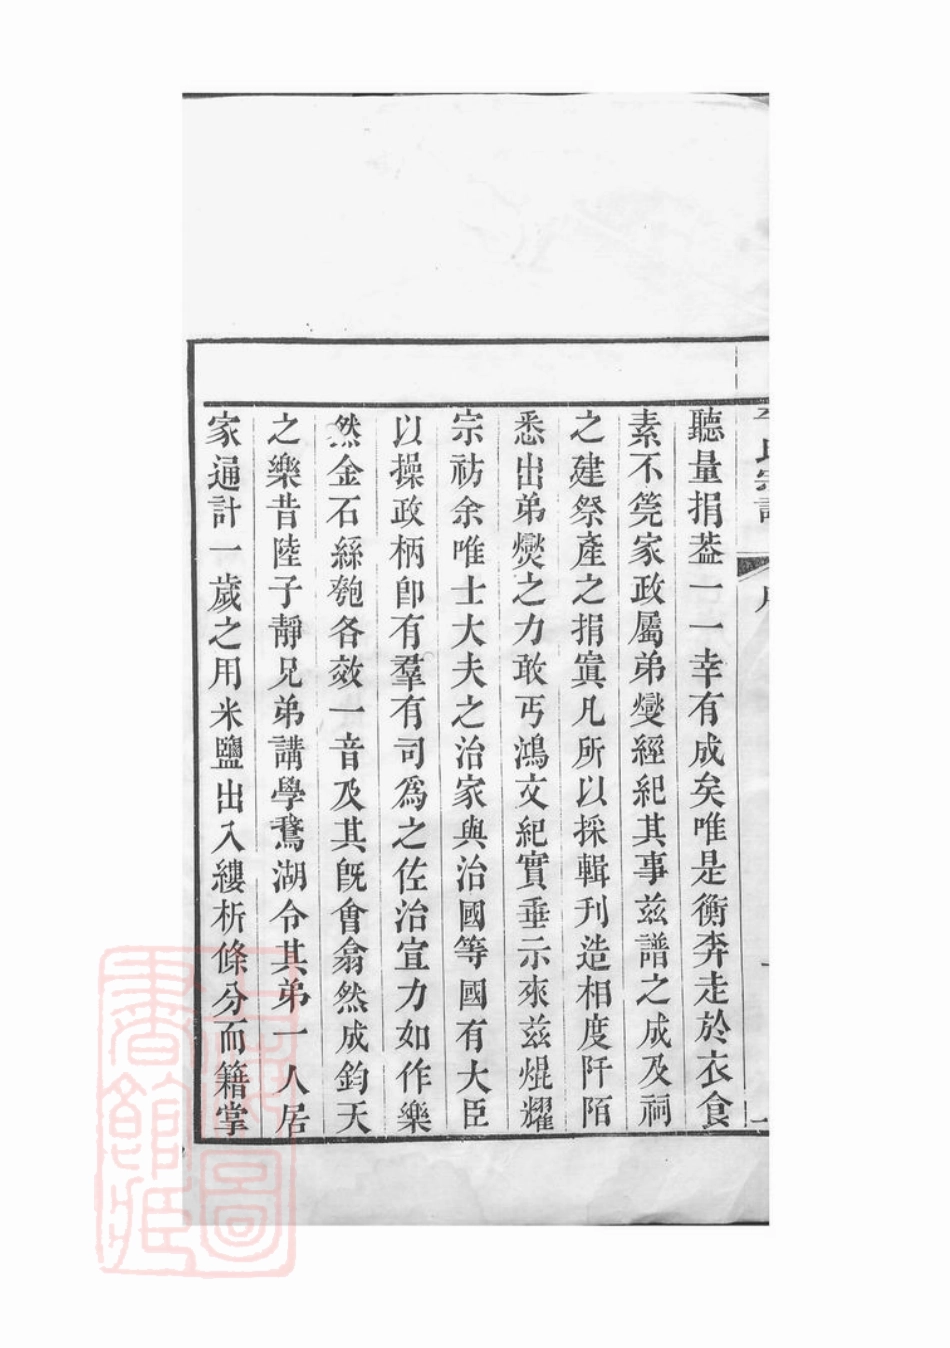 聽量捐葢一一幸有成矣唯是衡奔走於衣食
素不筦家政屬弟燮經紀其事茲譜之成及祠
之建祭產之捐寘凡所以採輯刊造相度阡陌
悉出弟燮之力敢丐鴻文紀實垂示來茲焜耀
宗祊余唯士大夫之治家與治國等國有大臣
以操政柄卽有羣有司為之佐治宣力如作樂
然金石絲匏各效一音及其旣會翕然成鈞天
之樂昔陸子靜兄弟講學鵞湖令其弟一人居
家通計一歲之用米鹽出入縷析條分而籍掌
上海圖
書館藏